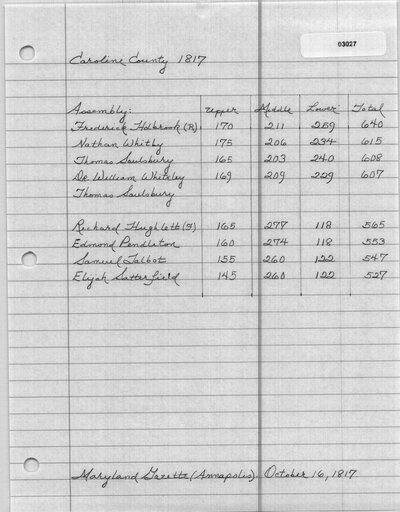 03027
Caroline County 1817
Assembly: Upper Middle Lower Total
Frederick Holbrook (R) 170 211 259 640
Nathan Whitby 175 206 234 615
Thomas Saulsbury 165 203 240 608
Dr William Whiteley 169 209 229 607
Thomas Saulsbury
Richard Hughlett (F) 165 277 118 565
Edmond Pendleton 160 274 118 553
Samuel Talbot 155 260 122 547
Elijah Satterfield 145 260 122 527
Maryland Gazette (Annapolis). October 16, 1817